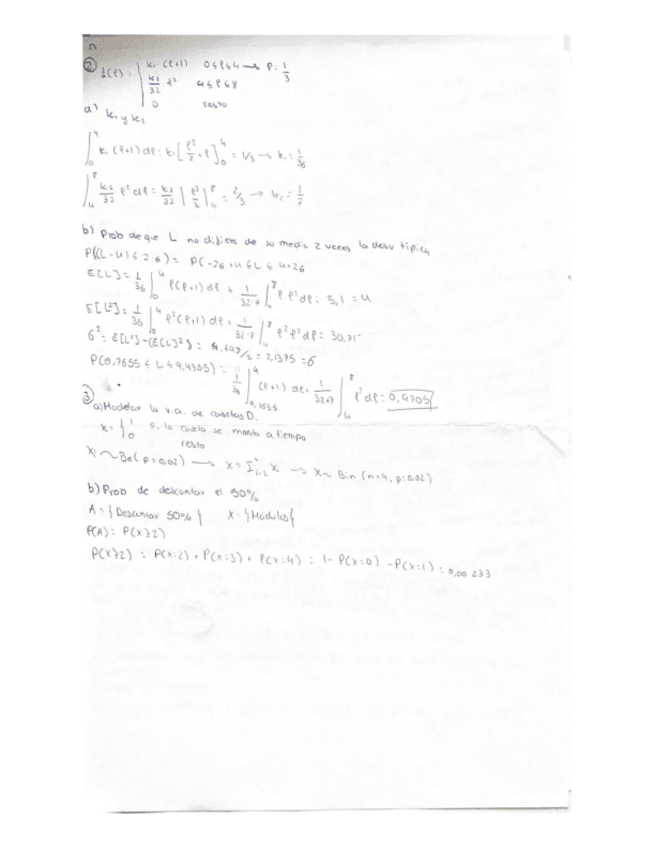 ② f(l) = { k₁ (l+1) 0≤l≤4 → P: 1/3
k₂/32 l² 4≤l≤8
0 resto
a) k₁ y k₂
∫₀⁴ k₁ (l+1) dl = k₁ [l²/2 + l]₀⁴ = 1/3 → k₁ = 1/36
∫₄⁸ k₂/32 l² dl = k₂/32 |l³/3|₄⁸ = 2/3 → k₂ = 1/7
b) Prob de que L no difiere de su media 2 veces la desv típica
P(|L-u| ≤ 2·σ) = P(-2σ+u ≤ L ≤ u+2σ
E[L] = 1/36 ∫₀⁴ l(l+1) dl + 1/32·7 ∫₄⁸ l l² dl = 5,1 = u
E[L²] = 1/36 ∫₀⁴ l²(l+1) dl + 1/32·7 ∫₄⁸ l² l² dl = 30,71
σ² = E[L²]-(E[L]²) = = 2,1375 = σ
P(0,7655 ≤ L ≤ 9,4355) = 1/36 ∫₀,₇₆₅₅⁴ (l+1) dl + 1/32·7 ∫₄⁸ l² dl = 0,9705
③
a) Modelar la v.a. de casetas D.
x = { 1 si la caseta se monta a tiempo
0 resto
Xi ~ Be(p=0,02) → X = Σ Xi → X ~ Bin (n=4, p=0,02)
b) Prob de descontar el 50%
A = {Descontar 50%} X = {Módulos}
P(A) = P(X≥2)
P(X≥2) = P(X=2) + P(X=3) + P(X=4) = 1 - P(X=0) - P(X=1) = 0,00233